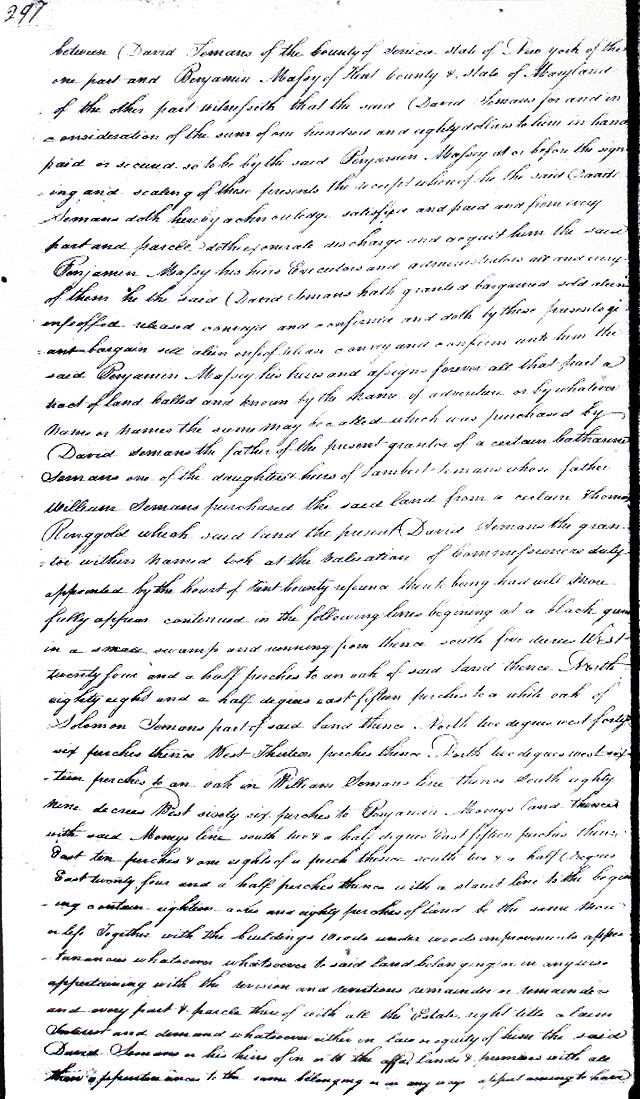 297
between David Semans of the County of Seneca State of New york of the
one part and Benjamin Massy of Kent County & State of Maryland
of the other part witnesseth that the said David Semans for and in
consideration of the sum of one hundred and eighty dollars to him in hand
paid or secured so to be by the said Benjamin Massey at or before the sign
ing and sealing of these presents the receipt whereof he the said David
Semans doth hereby acknowledge satisfied and paid and from every
part and parcel doth exonerate discharge and acquit him the said
Benjamin Massy his heirs Executors and administrators all and every
of them he the said David Semans hath granted bargained sold alien
enfeoffed released conveyd and confirmed and doth by these presents gr
ant bargain sell alien enfeof release convey and confirm unto him the
said Benjamin Massey his heirs and assigns forever all that part a
tract of land Called and known by the name of adventure or by whatever
name or names the same may be called which was purchased by
David Semans the father of the present grantor of a certain Catharine
Semans one of the daughters & heirs of Lambert Semans whose father
William Semans purchased the said land from a certain Thomas
Ringgold which said land the present David Semans the gran
tor within named took at the Valuation of Commissioners duly
appointed by the Court of Kent County refrence there to being had will more
fully appear contained in the following lines begining at a black gum
in a small swamp and running from thence south four decrees West
twenty four and a half perches to an oak of said land thence North
eighty eight and a half degrees east fifteen perches to a white oak of
Solomon Semans part of said land thence North two degrees west forty
six perches thence West Thirteen perches thence North two degrees west six
teen perches to an oak in William Semans line thence South eighty
nine decrees West sixty six perches to Benjamin Moneys land thence
with said Moneys line south two & a half degrees East fifteen perches thence
East ten perches & one eights of a perch thence south two & a half Degrees
East twenty four and a half perches thence with a strait line to the begin
ing contain eighteen acres and eighty perches of land be the same more
or less Together with the buildings woods under woods improvements appur
tenances whatsoever whatsoever to said land belonging or in any wise
appertaining with the revision and revertions remainder or remainders
and every part & parcle there of with all the Estate, right title a laim
Interest and demand whatsoever either in law or equity of him the said
David Semans or his heirs of in or to the affor lands & premises with all
their appurtenances to the same belonging or in any ways appertaining to have